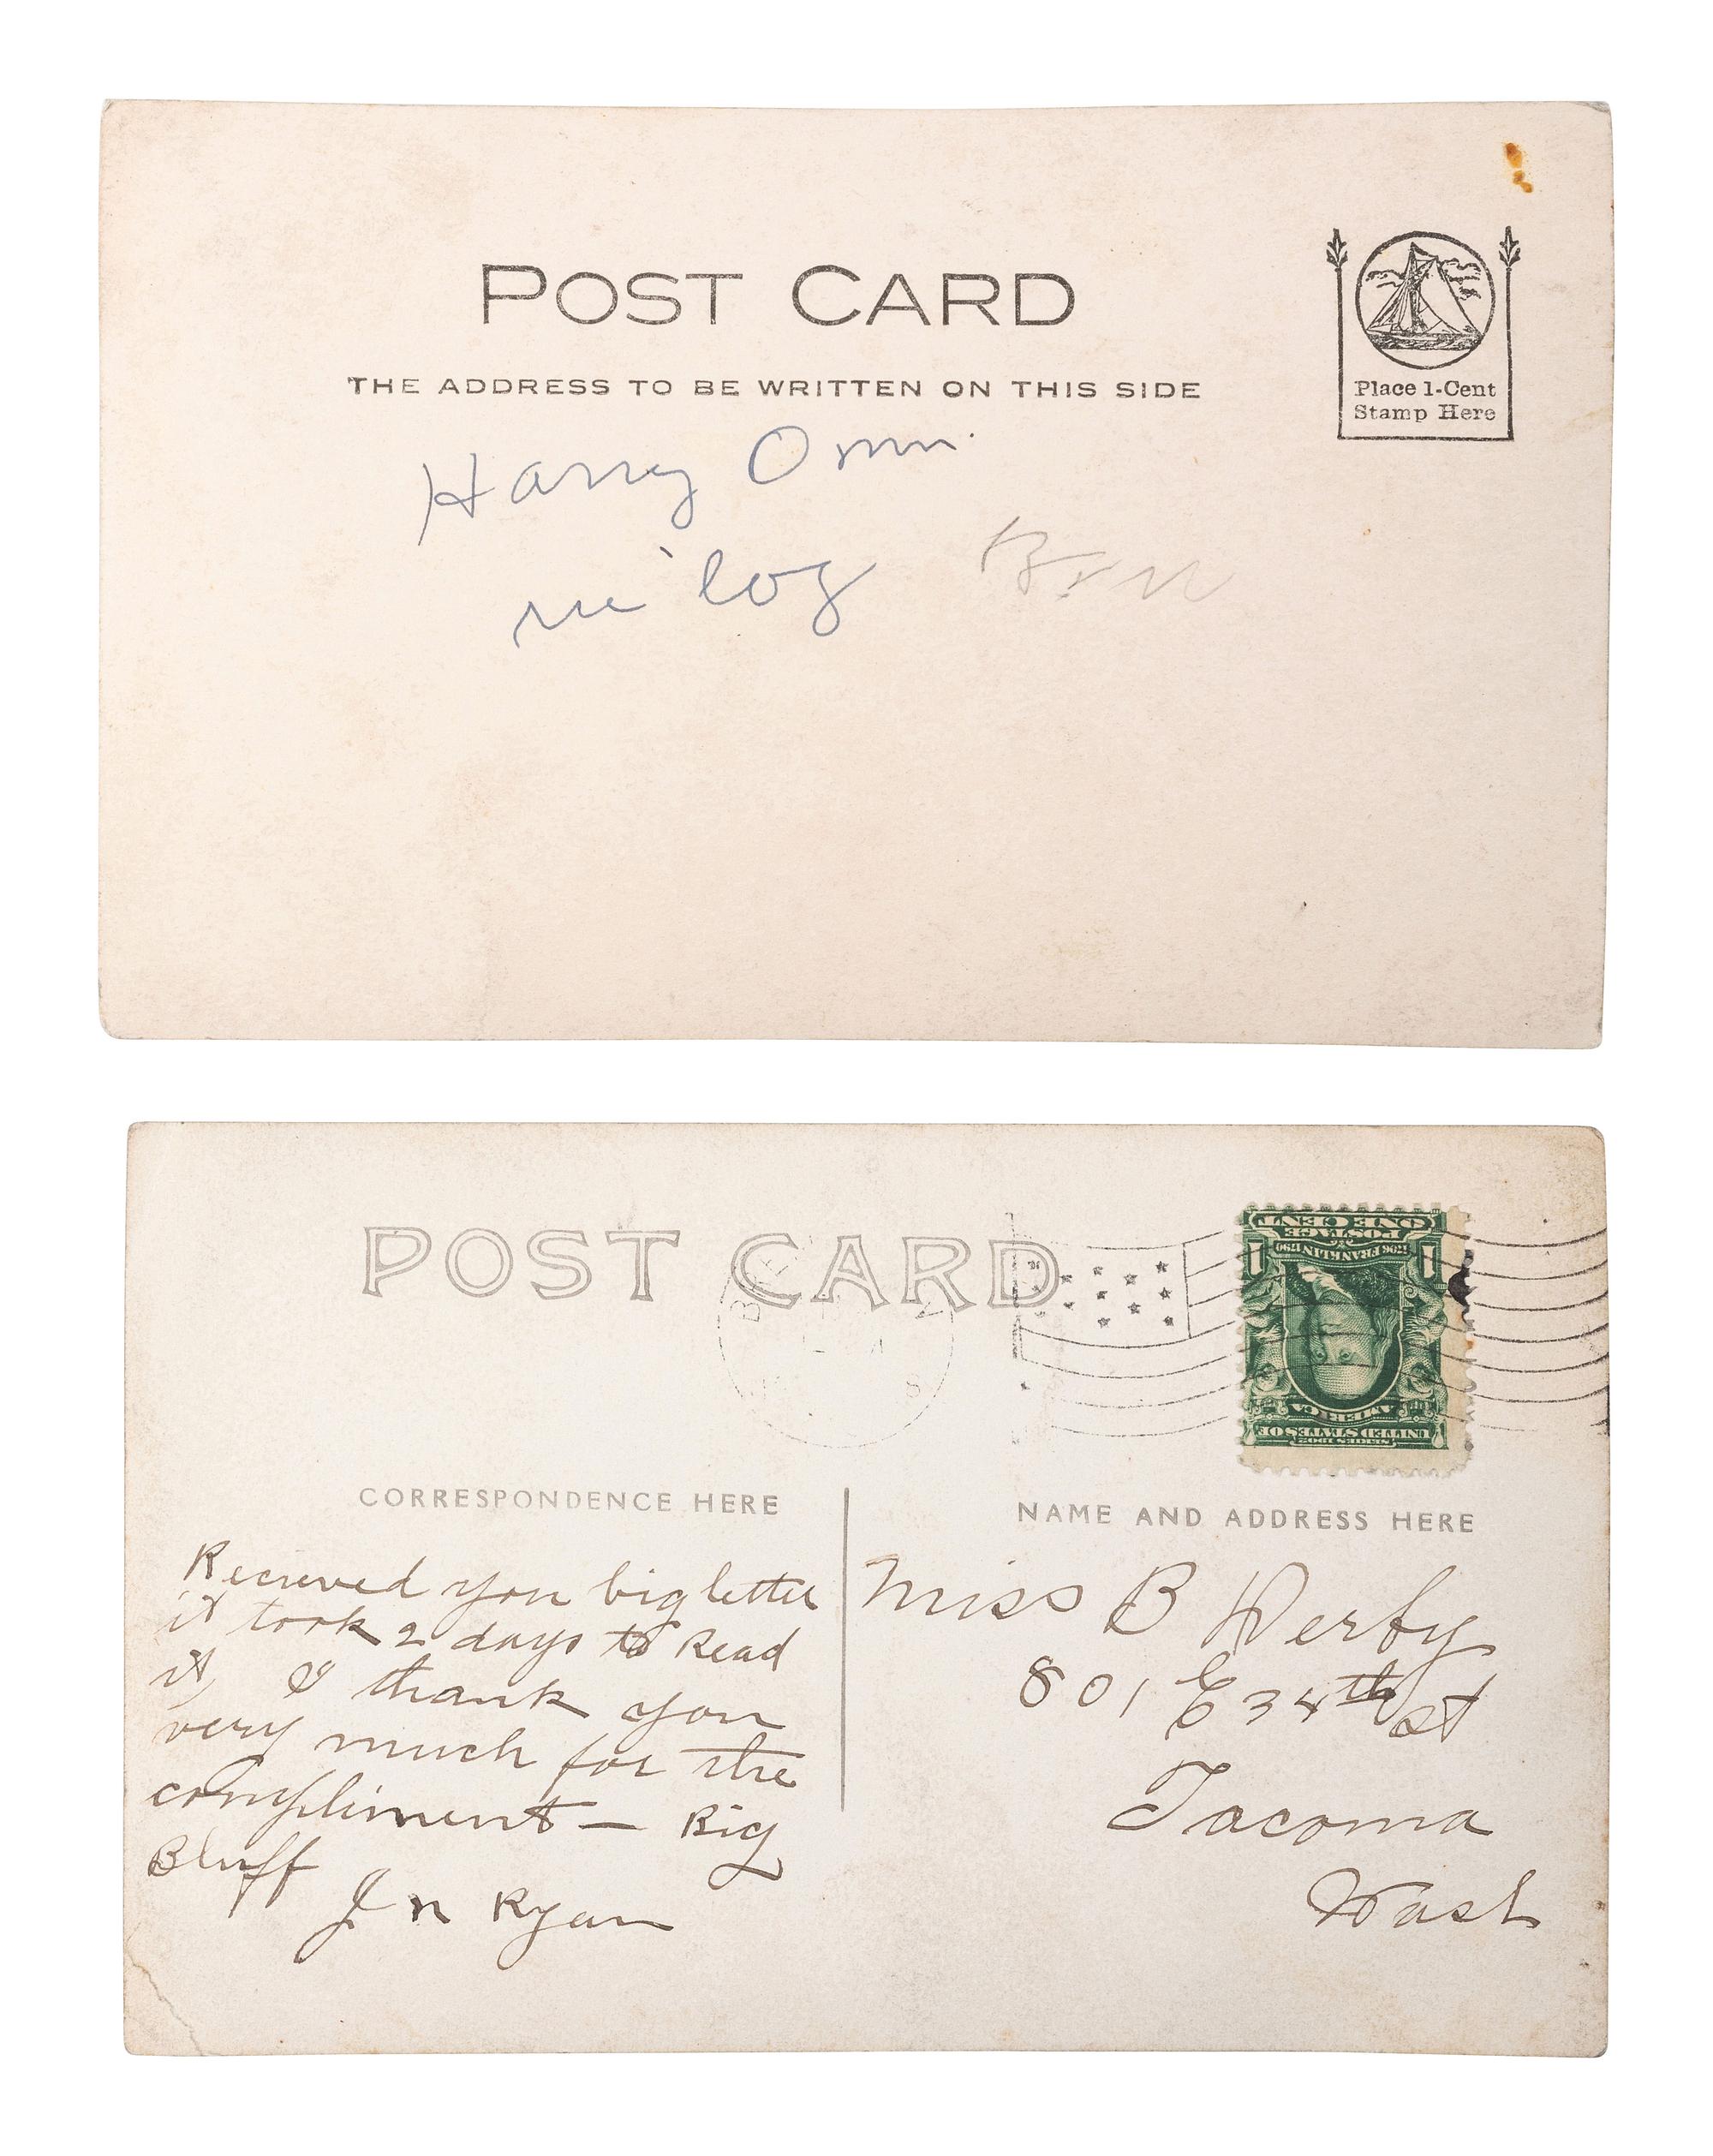 POST CARD
THE ADDRESS TO BE WRITTEN ON THIS SIDE
Place 1-Cent
Stamp Here
Harry
POST CARD
ONE CENT
POSTAGE
1706 FRANKLIN 1790
1 1
AMERICA
UNITED STATES OF
SERIES 1902
CORRESPONDENCE HERE
Recieved you big letter
it took 2 days to Read
it, I thank you
very much for the
compliment — Big
Bluff
J n Ryan
NAME AND ADDRESS HERE
Miss B Derby
801 E 34th st
Tacoma
Wash